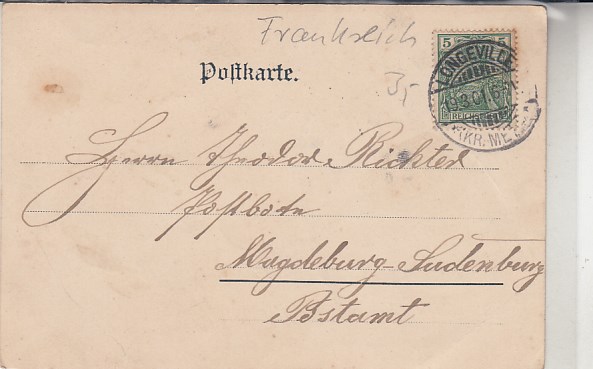 Frankreich
Postkarte.
3,-
5 5
LONGEVILLE
19.3.01
(KR. ME
Herrn Theodor Richter
Postbote
Magdeburg-Sudenburg
Pstamt